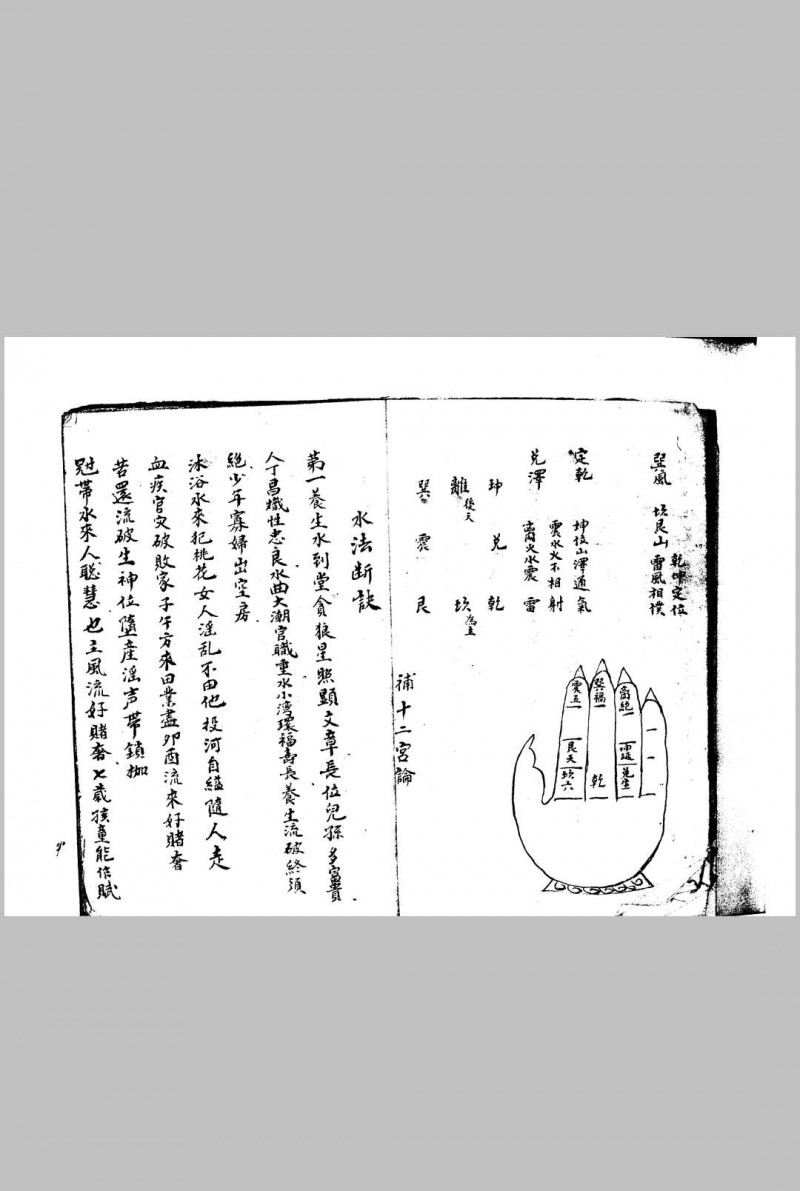 乾坤定位
巽風 坎艮山 雷風相撲
定乾 坤位山澤通氣
雲水火不相射
兌澤 离火水震 雷
坤 兌 乾
離 後天 坎 為主
巽 震 艮
震五
艮天
坎六
巽福
乾
离絕
兌生
補十二宮論
水法断訣
第一養生水到堂貪狼星照顯文章長位兒孫多富貴
人丁昌熾性忠良水曲大潮官職重水小灣環福壽長養生流破終須
絕少年寡婦出空房
沐浴水來犯桃花女人淫乱不由他投河自縊隨人走
血疾官灾破敗家子午方來田業盡卯酉流來好賭奢
若還流破生神位墮産淫声帶鎖枷
冠帶水來人聡慧也主風流好賭奢七歲孩童能作賦